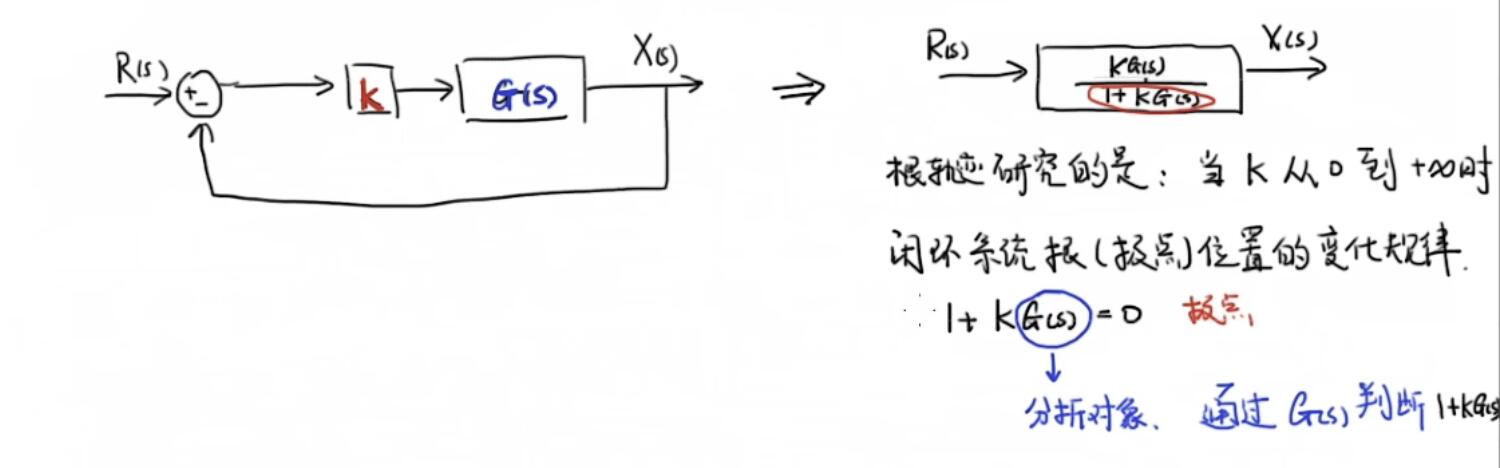 R(s)
+
-
k
G(s)
X(s)
⇒
R(s)
KG(s)
1+KG(s)
X(s)
根轨迹研究的是：当 K 从 0 到 +∞时
闭环系统根(极点)位置的变化规律.
1+KG(s)=0 极点
分析对象. 通过 G(s) 判断 1+KG(s)